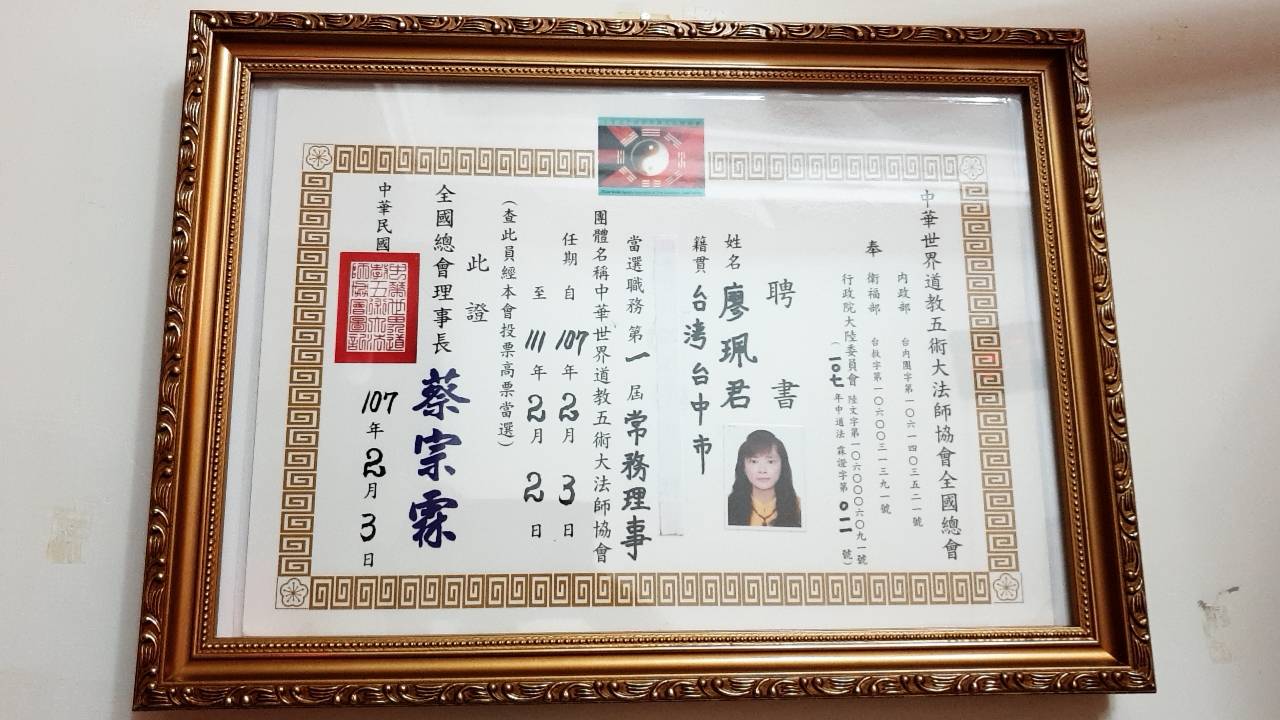 中華世界道教五術大法師協會全國總會
奉
內政部 台內團字第一〇六一四〇三五二一號
衛福部 台教字第一〇六〇〇三一三九一號
行政院大陸委員會 陸文字第一〇六〇〇〇六〇九一號
(一〇七年中道法霖證字第〇二一號)
聘書
姓名 廖珮君
籍貫 台灣台中市
當選職務 第一屆常務理事
團體名稱中華世界道教五術大法師協會
任期自107年2月3日
至111年2月2日
(查此員經本會投票高票當選)
此證
全國總會理事長 蔡宗霖
中華民國107年2月3日